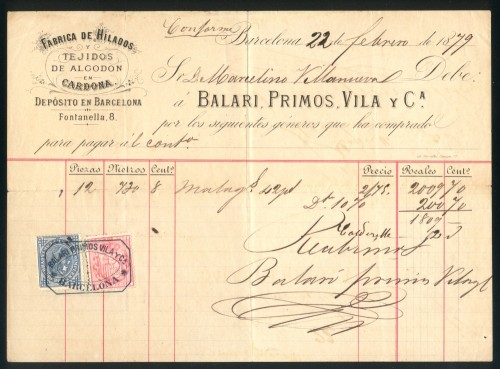 FABRICA DE HILADOS
Y
TEJIDOS
DE ALGODON
EN
CARDONA
DEPÓSITO EN BARCELONA
Fontanella, 8.
Conforme
Barcelona 22 de febrero de 1879
Sr. D. Marcelino Villanueva Debe:
á BALARI, PRIMOS, VILA Y Cª.
por los siguientes géneros que ha comprado
para pagar ál conto
Piezas Metros Centº Precio Reales Centº
12 730 8 42 2/75 2009 70
Dto 10 % 200 70
1809
Recibimos
Balari primos Vila y Cª
BALARI PRIMOS VILA Y Cª
BARCELONA